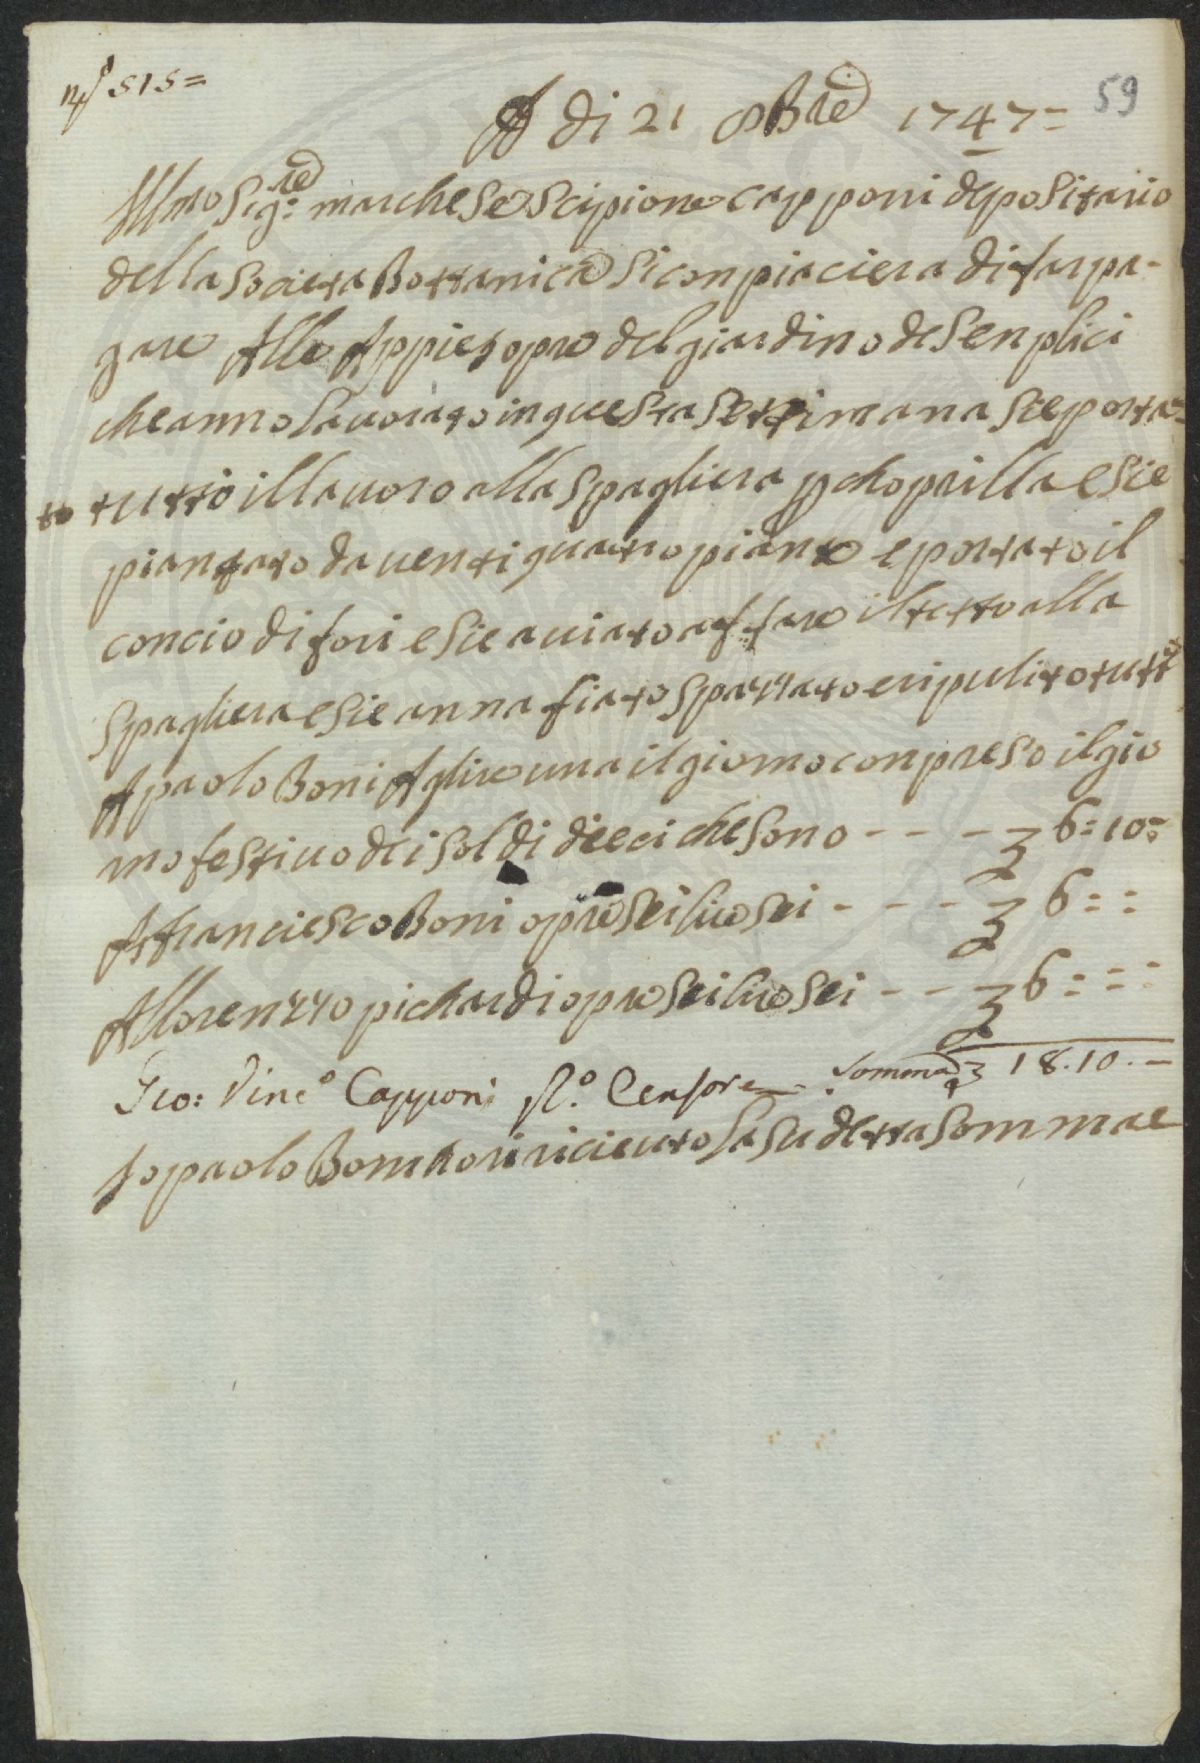 n° 515=
59
A di 21 8Bre 1747=
Illmo Sig:re marchese Scipione capponi depositario
della Societa Bottanica Si conpiaciera di far pa-
gare Alle Appie opre del giardino de Senplici
che anno lauorato in questa Settimana Sie porta-
to tutto il lauoro alla Spagliera p choprilla e Sie
piantato da uenti quatro piante e portato il
concio di fori e Sie auiato affare il tetto alla
Spagliera e Sie annafiato Spazzato e ripulito tutto
A paolo Boni A lire una il giorno conpreso il gio
rno festiuo dei Soldi dieci che Sono - - - - 6:10:
A franciesco Boni opre Sei lire Sei - - - - 6: :
A llorenzzo pichardi opre Sei lire Sei - - - 6: : :
Gio: Vinc° Capponi P.° Censore Somma 18.10.-
Io paolo Boni ho ricieuto la Su detta Somma e